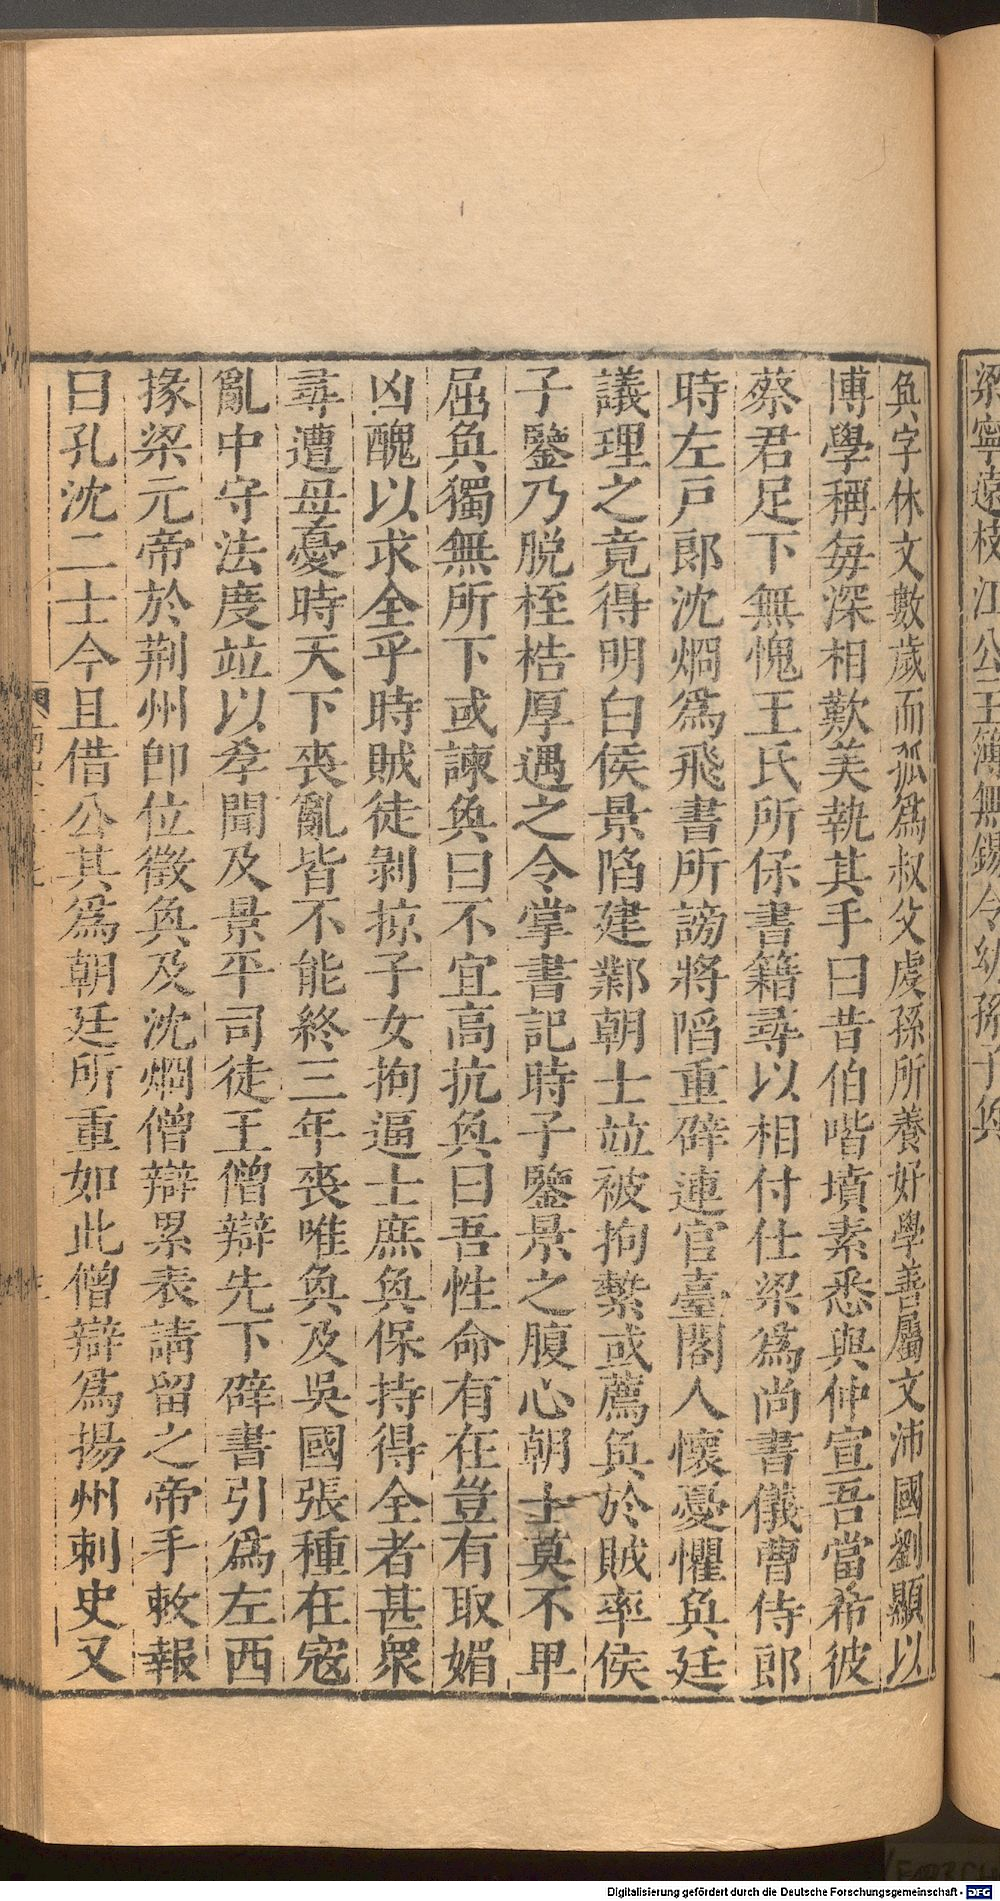 梁寧遠枝江公主簿無錫令幼孫子奐
奐字休文數歲而孤爲叔父虔孫所養好學善屬文沛國劉顯以
博學稱每深相歎美執其手曰昔伯喈墳素悉與仲宣吾當希彼
蔡君足下無愧王氏所保書籍尋以相付仕梁爲尚書儀曹侍郎
時左戸郎沈烱爲飛書所謗將䧟重辟連官臺閣人懷憂懼奐廷
議理之竟得明白侯景陷建鄴朝士竝被拘縶或薦奐於賊率侯
子鑒乃脱桎梏厚遇之令掌書記時子鑒景之腹心朝士莫不畢
屈奐獨無所下或諫奐曰不宜高抗奐曰吾性命有在豈有取媚
凶醜以求全乎時賊徒剥掠子女拘逼士庶奐保持得全者甚衆
尋遭母憂時天下喪亂皆不能終三年喪唯奐及吳國張種在寇
亂中守法度竝以孝聞及景平司徒王僧辯先下辟書引爲左西
掾梁元帝於荆州卽位徵奐及沈烱僧辯累表請留之帝手敕報
曰孔沈二士今且借公其爲朝廷所重如此僧辯爲揚州刺史又
Digitalisierung gefördert durch die Deutsche Forschungsgemeinschaft - DFG